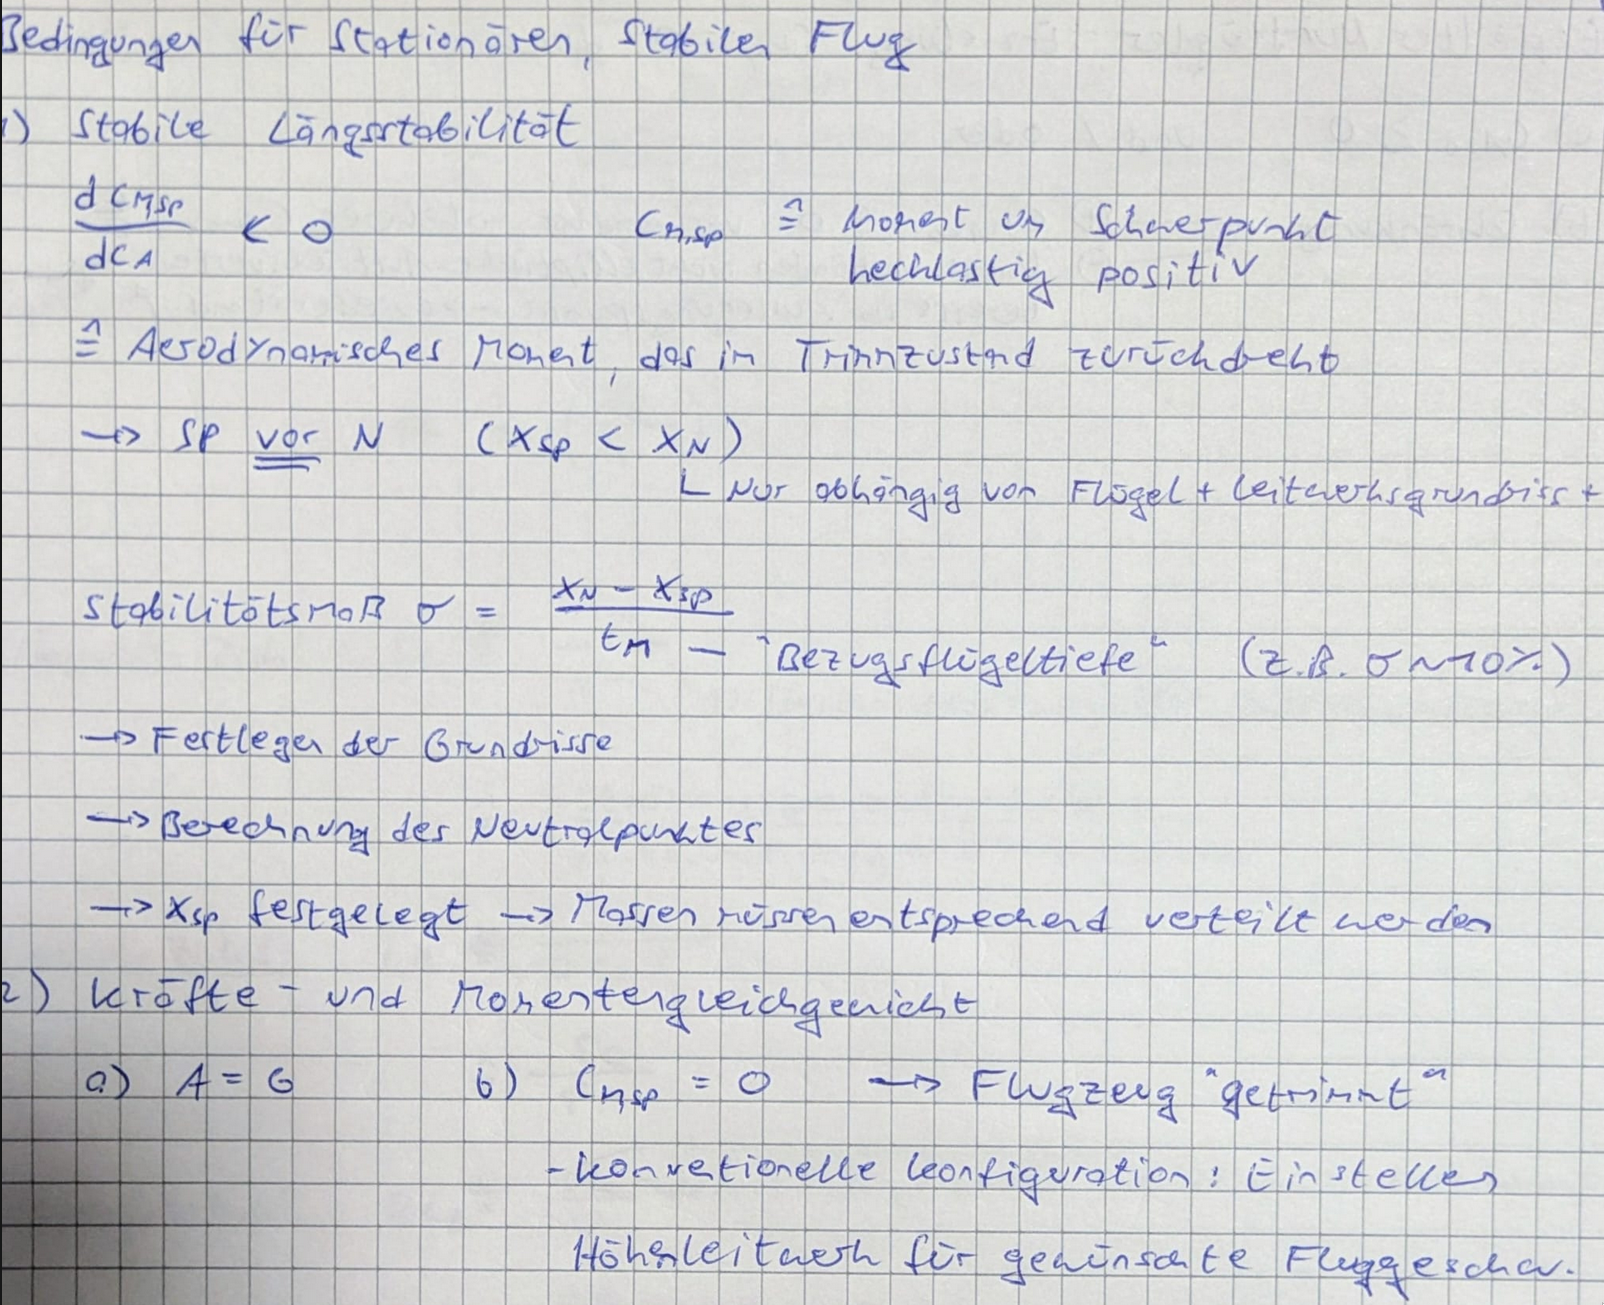 Bedingungen für Stationären, Stabilen Flug
1) Stabile Längsstabilität
dCMSP/dCA < 0 CM,SP ≙ Moment um Schwerpunkt
hecklastig positiv
≙ Aerodynamisches Moment, das in Trimmzustand zurückdreht
→ SP vor N (XSP < XN)
Nur abhängig von Flügel + Leitwerksgrundriss +
Stabilitätsmaß σ = (XN - XSP)/tM — "Bezugsflügeltiefe" (z.B. σ ~ 10%)
→ Festlegen der Grundrisse
→ Berechnung des Neutralpunktes
→ XSP festgelegt → Massen müssen entsprechend verteilt werden
2) Kräfte- und Momentengleichgewicht
a) A = G b) CM,SP = 0 → Flugzeug "getrimmt"
- Konventionelle Konfiguration: Einstellen
Höhenleitwerk für gewünschte Fluggeschw.